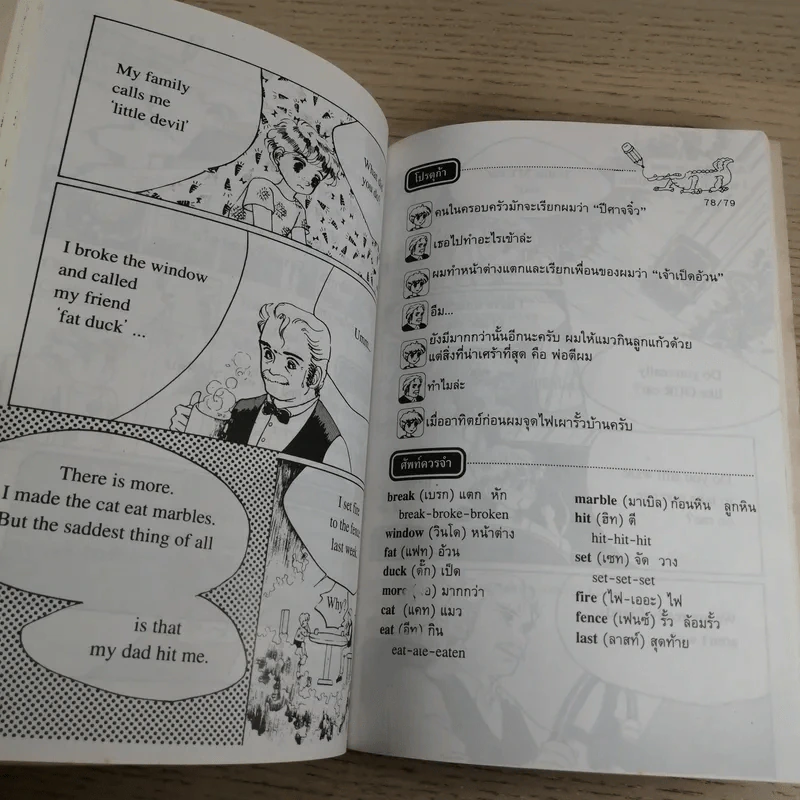 My family
calls me
'little devil'
What did
you do?
I broke the window
and called
my friend
'fat duck' ...
Umm..
There is more.
I made the cat eat marbles.
But the saddest thing of all
is that
my dad hit me.
I set fire
to the fence
last week.
Why?
โปรดุก้า
78/79
คนในครอบครัวมักจะเรียกผมว่า “ปีศาจจิ๋ว”
เธอไปทำอะไรเข้าล่ะ
ผมทำหน้าต่างแตกและเรียกเพื่อนของผมว่า “เจ้าเป็ดอ้วน”
อืม...
ยังมีมากกว่านั้นอีกนะครับ ผมให้แมวกินลูกแก้วด้วย
แต่สิ่งที่น่าเศร้าที่สุด คือ พ่อตีผม
ทำไมล่ะ
เมื่ออาทิตย์ก่อนผมจุดไฟเผารั้วบ้านครับ
ศัพท์ควรจำ
break (เบรก) แตก หัก
break-broke-broken
window (วินโด) หน้าต่าง
fat (แฟท) อ้วน
duck (ดั๊ก) เป็ด
more มากกว่า
cat (แคท) แมว
eat (อีท) กิน
eat-ate-eaten
marble (มาเบิล) ก้อนหิน ลูกหิน
hit (ฮิท) ตี
hit-hit-hit
set (เซท) จัด วาง
set-set-set
fire (ไฟ-เออะ) ไฟ
fence (เฟนซ์) รั้ว ล้อมรั้ว
last (ลาสท์) สุดท้าย